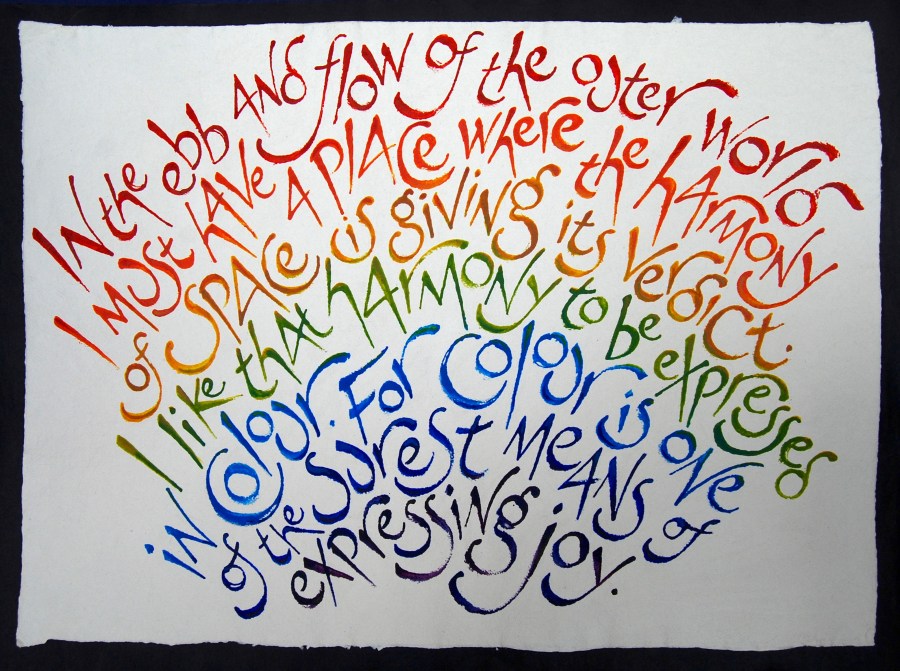 IN the ebb AND flow of the outer world
I must have A PLACE where the hARMONY
of SPACE is giving its verdict.
I like that hARMONY to be expressed
in Colour. For Colour is one
of the surest MeANS of
expressing joy.